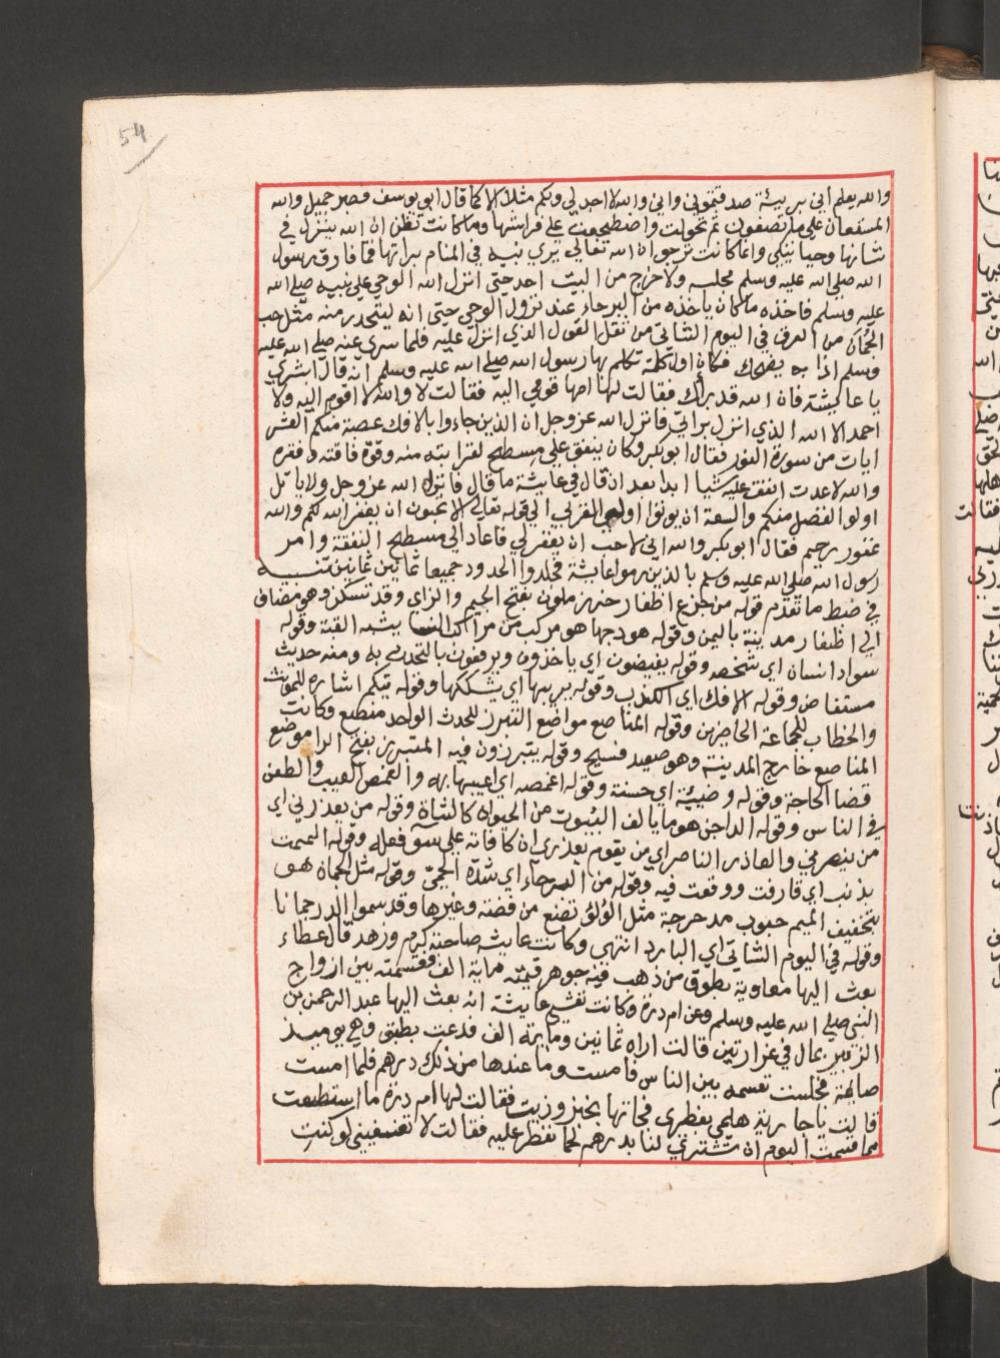 54
والله يعلم اني بريئة صدقتموني واني والله لا اجد لي ولكم مثلا الا كما قال ابو يوسف فصبر جميل والله
المستعان على ما تصفون ثم تحولت واضطجعت على فراشها وما كانت تظن ان الله ينزل في
شانها وحيا يتلى وانما كانت ترجوا ان الله تعالى يري نبيه في المنام براتها فما فارق رسول
الله صلى الله عليه وسلم مجلسه ولا خرج من البيت احد حتى انزل الله الوحي على نبيه صلى الله
عليه وسلم فاخذه ما كان ياخذه من البرحاء عند نزول الوحي حتى انه ليتحدر منه مثل حب
الجمان من العرق في اليوم الشاتي من ثقل القول الذي انزل عليه فلما سري عنه صلى الله عليه
وسلم اذا به يضحك فكان اول كلمة تكلم بها رسول الله صلى الله عليه وسلم انه قال ابشري
يا عايشة فان الله قد براك فقالت لها امها قومي اليه فقالت لا والله لا اقوم اليه ولا
احمد الا الله الذي انزل براتي فانزل الله عز وجل ان الذين جاءوا بالافك عصبة منكم العشر
ايات من سورة النور فقال ابو بكر وكان ينفق على مسطح لقرابته منه وقوة فاقته وفقره
والله لا عدت انفق عليه شيا ابدا بعد ان قال في عايشة ما قال فانزل الله عز وجل ولا ياتل
اولوا الفضل منكم والسعة ان يوتوا اولي القربى الى قوله تعالى الا تحبون ان يغفر الله لكم والله
غفور رحيم فقال ابو بكر والله اني لاحب ان يغفر لي فاعاد الى مسطح النفقة وامر
رسول الله صلى الله عليه وسلم بالذين رموا عايشة فجلدوا الحدود جميعا ثمانين ثمانين تنبيه
في ضبط ما تقدم قوله من جزع اظفار خرز ملون بفتح الجيم والزاي وقد تسكن وهو مضاف
الى اظفار مدينة باليمن وقوله هودجها هو مركب من مراكب النسا يشبه القبة وقوله
سواد انسان اي شخصه وقوله يفيضون اي ياخذون ويرفعون بالتحدث به ومنه حديث
مستفاض وقوله الافك اي الكذب وقوله يريبها اي يشككها وقوله تيكم اشارة للمونث
والخطاب للجماعة الحاضرين وقوله المناصع مواضع التبرز للحدث الواحد منصع وكانت
المناصع خارج المدينة وهو صعيد فسيح وقوله يتبرزون فيه المتبرز بفتح الرا موضع
قضا الحاجة وقوله وضيئة اي حسنة وقوله اغمصه اي اعيبها به والغمص العيب والطعن
في الناس وقوله الداجن هو ما يالف البيوت من الحيوان كالشاة وقوله من يعذرني اي
من ينصرني والعاذر الناصر اي من يقوم بعذري ان كافاته على سو فعله وقوله الممت
بذنب اي قارفت ووقعت فيه وقوله من البرحاء اي شدة الحمى وقوله مثل الجمان هو
بتخفيف الميم حبوب مدحرجة مثل اللولو تصنع من فضة وغيرها وقد سموا الدر جمانا
وقوله في اليوم الشاتي اي البارد انتهى وكانت عايشة صاحبة كرم وزهد قال عطاء
بعث اليها معاوية بطوق من ذهب فيه جوهر قيمته ماية الف فقسمته بين ازواج
النبي صلى الله عليه وسلم وعن ام درة وكانت تغشى عايشة انه بعث اليها عبد الرحمن بن
الزبير بمال في غرارتين قالت اراه ثمانين وماية الف فدعت بطبق وهي يوميذ
صايمة فجلست تقسمه بين الناس فامست وما عندها من ذلك درهم فلما امست
قالت يا جارية هلمي بفطري فجاتها بخبز وزيت فقالت لها ام درة ما استطعت
مما قسمت اليوم ان تشتري لنا بدرهم لحما نفطر عليه فقالت لا تعنفيني لو كنت